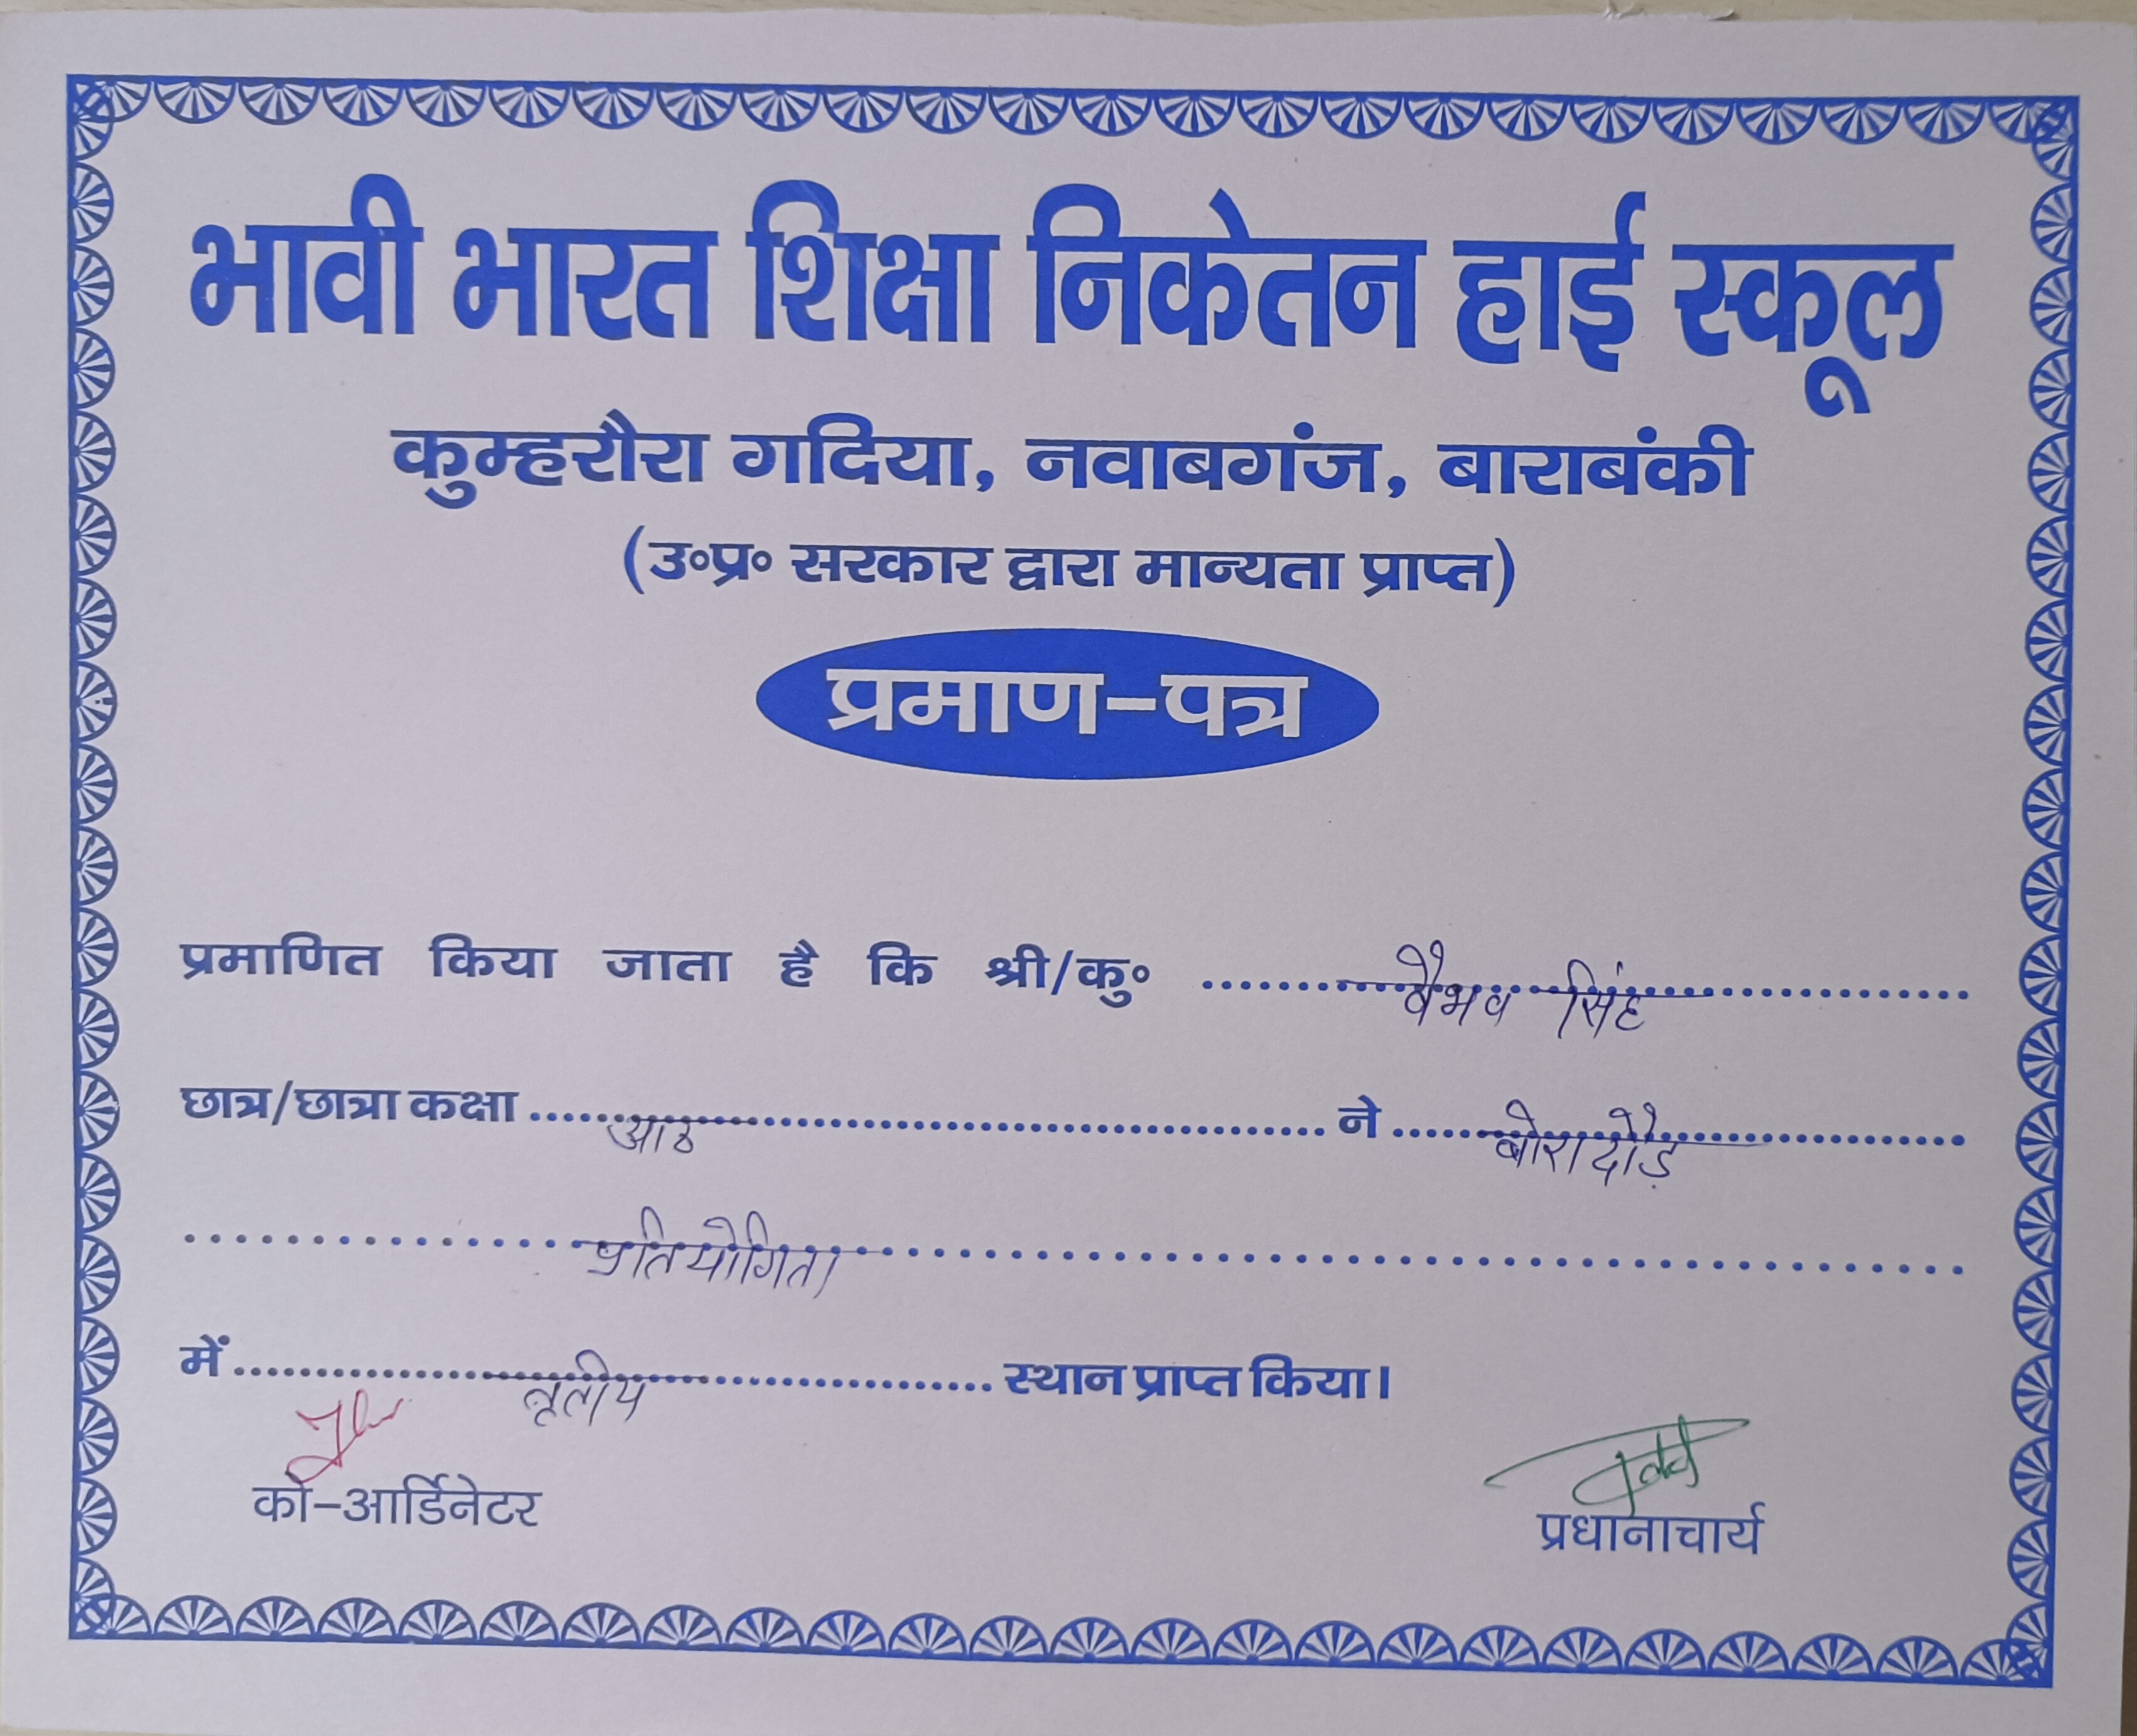 भावी भारत शिक्षा निकेतन हाई स्कूल
कुम्हरौरा गदिया, नवाबगंज, बाराबंकी
(उ॰प्र॰ सरकार द्वारा मान्यता प्राप्त)
प्रमाण-पत्र
प्रमाणित किया जाता है कि श्री/कु॰ वैभव सिंह
छात्र/छात्रा कक्षा आठ ने बोरा दौड़
प्रतियोगिता
में तृतीय स्थान प्राप्त किया।
को-आर्डिनेटर
प्रधानाचार्य